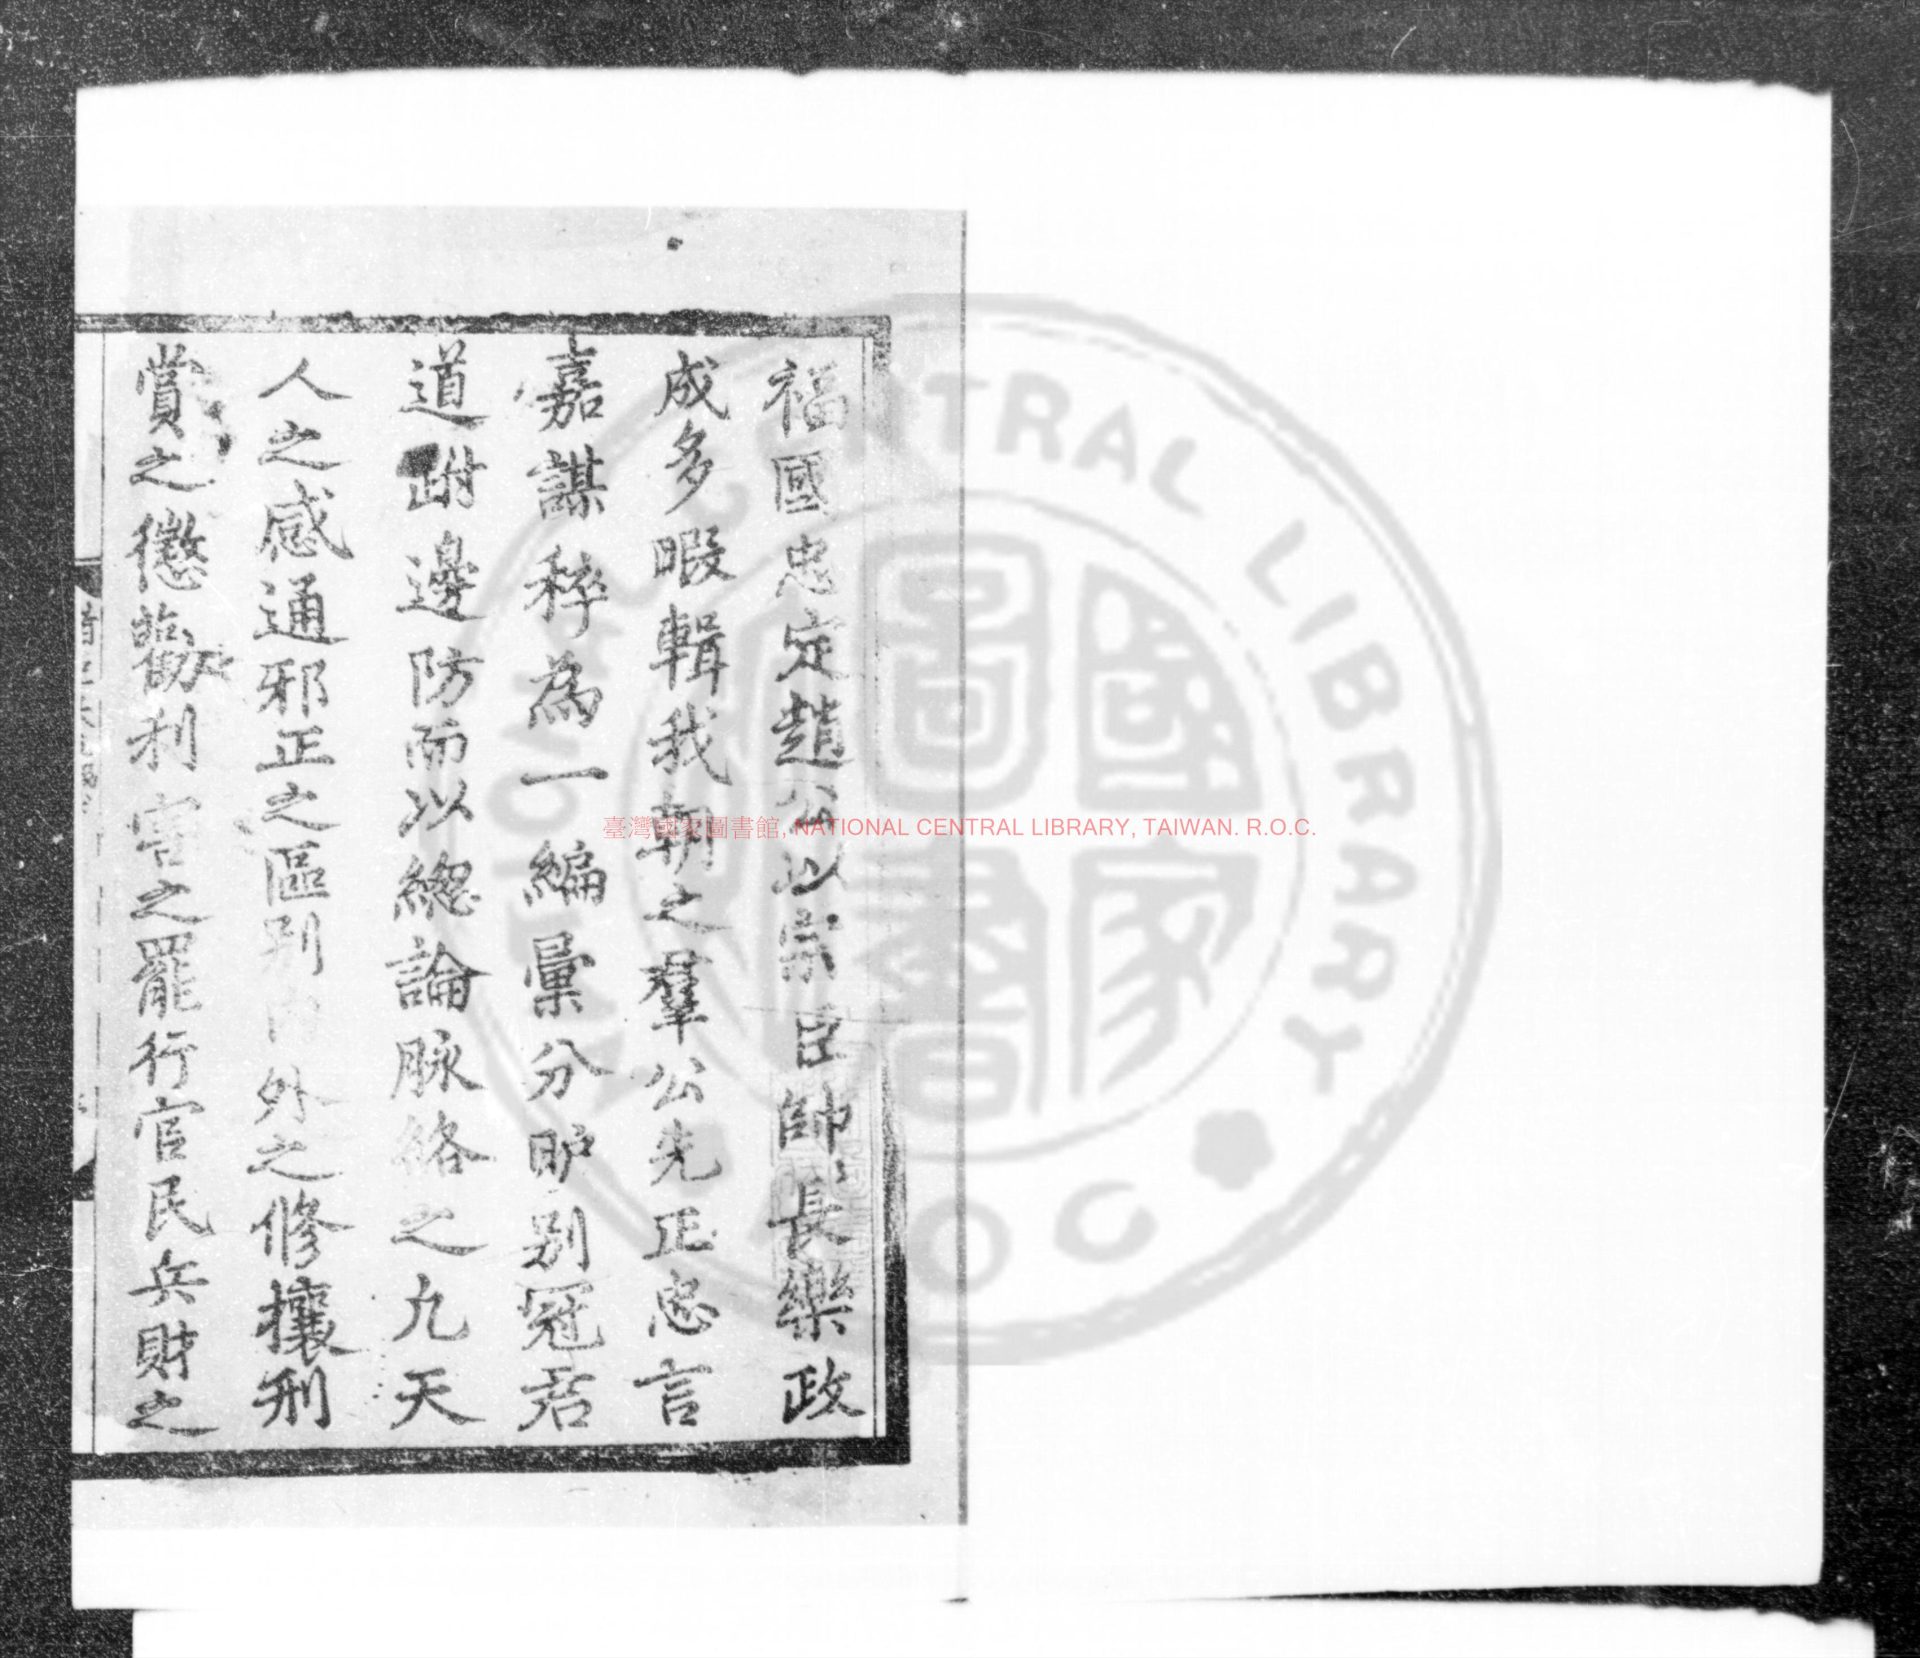 福國忠定趙公以宗臣帥長樂政
成多暇輯我朝之羣公先正忠言
嘉謀稡為一編彙分眂别冠君
道跗邊防而以總論脉絡之九天
人之感通邪正之區别內外之修攘刑
賞之懲勸利害之罷行官民兵財之
臺灣國家圖書館, NATIONAL CENTRAL LIBRARY, TAIWAN. R.O.C.
國家圖書
CENTRAL LIBRARY